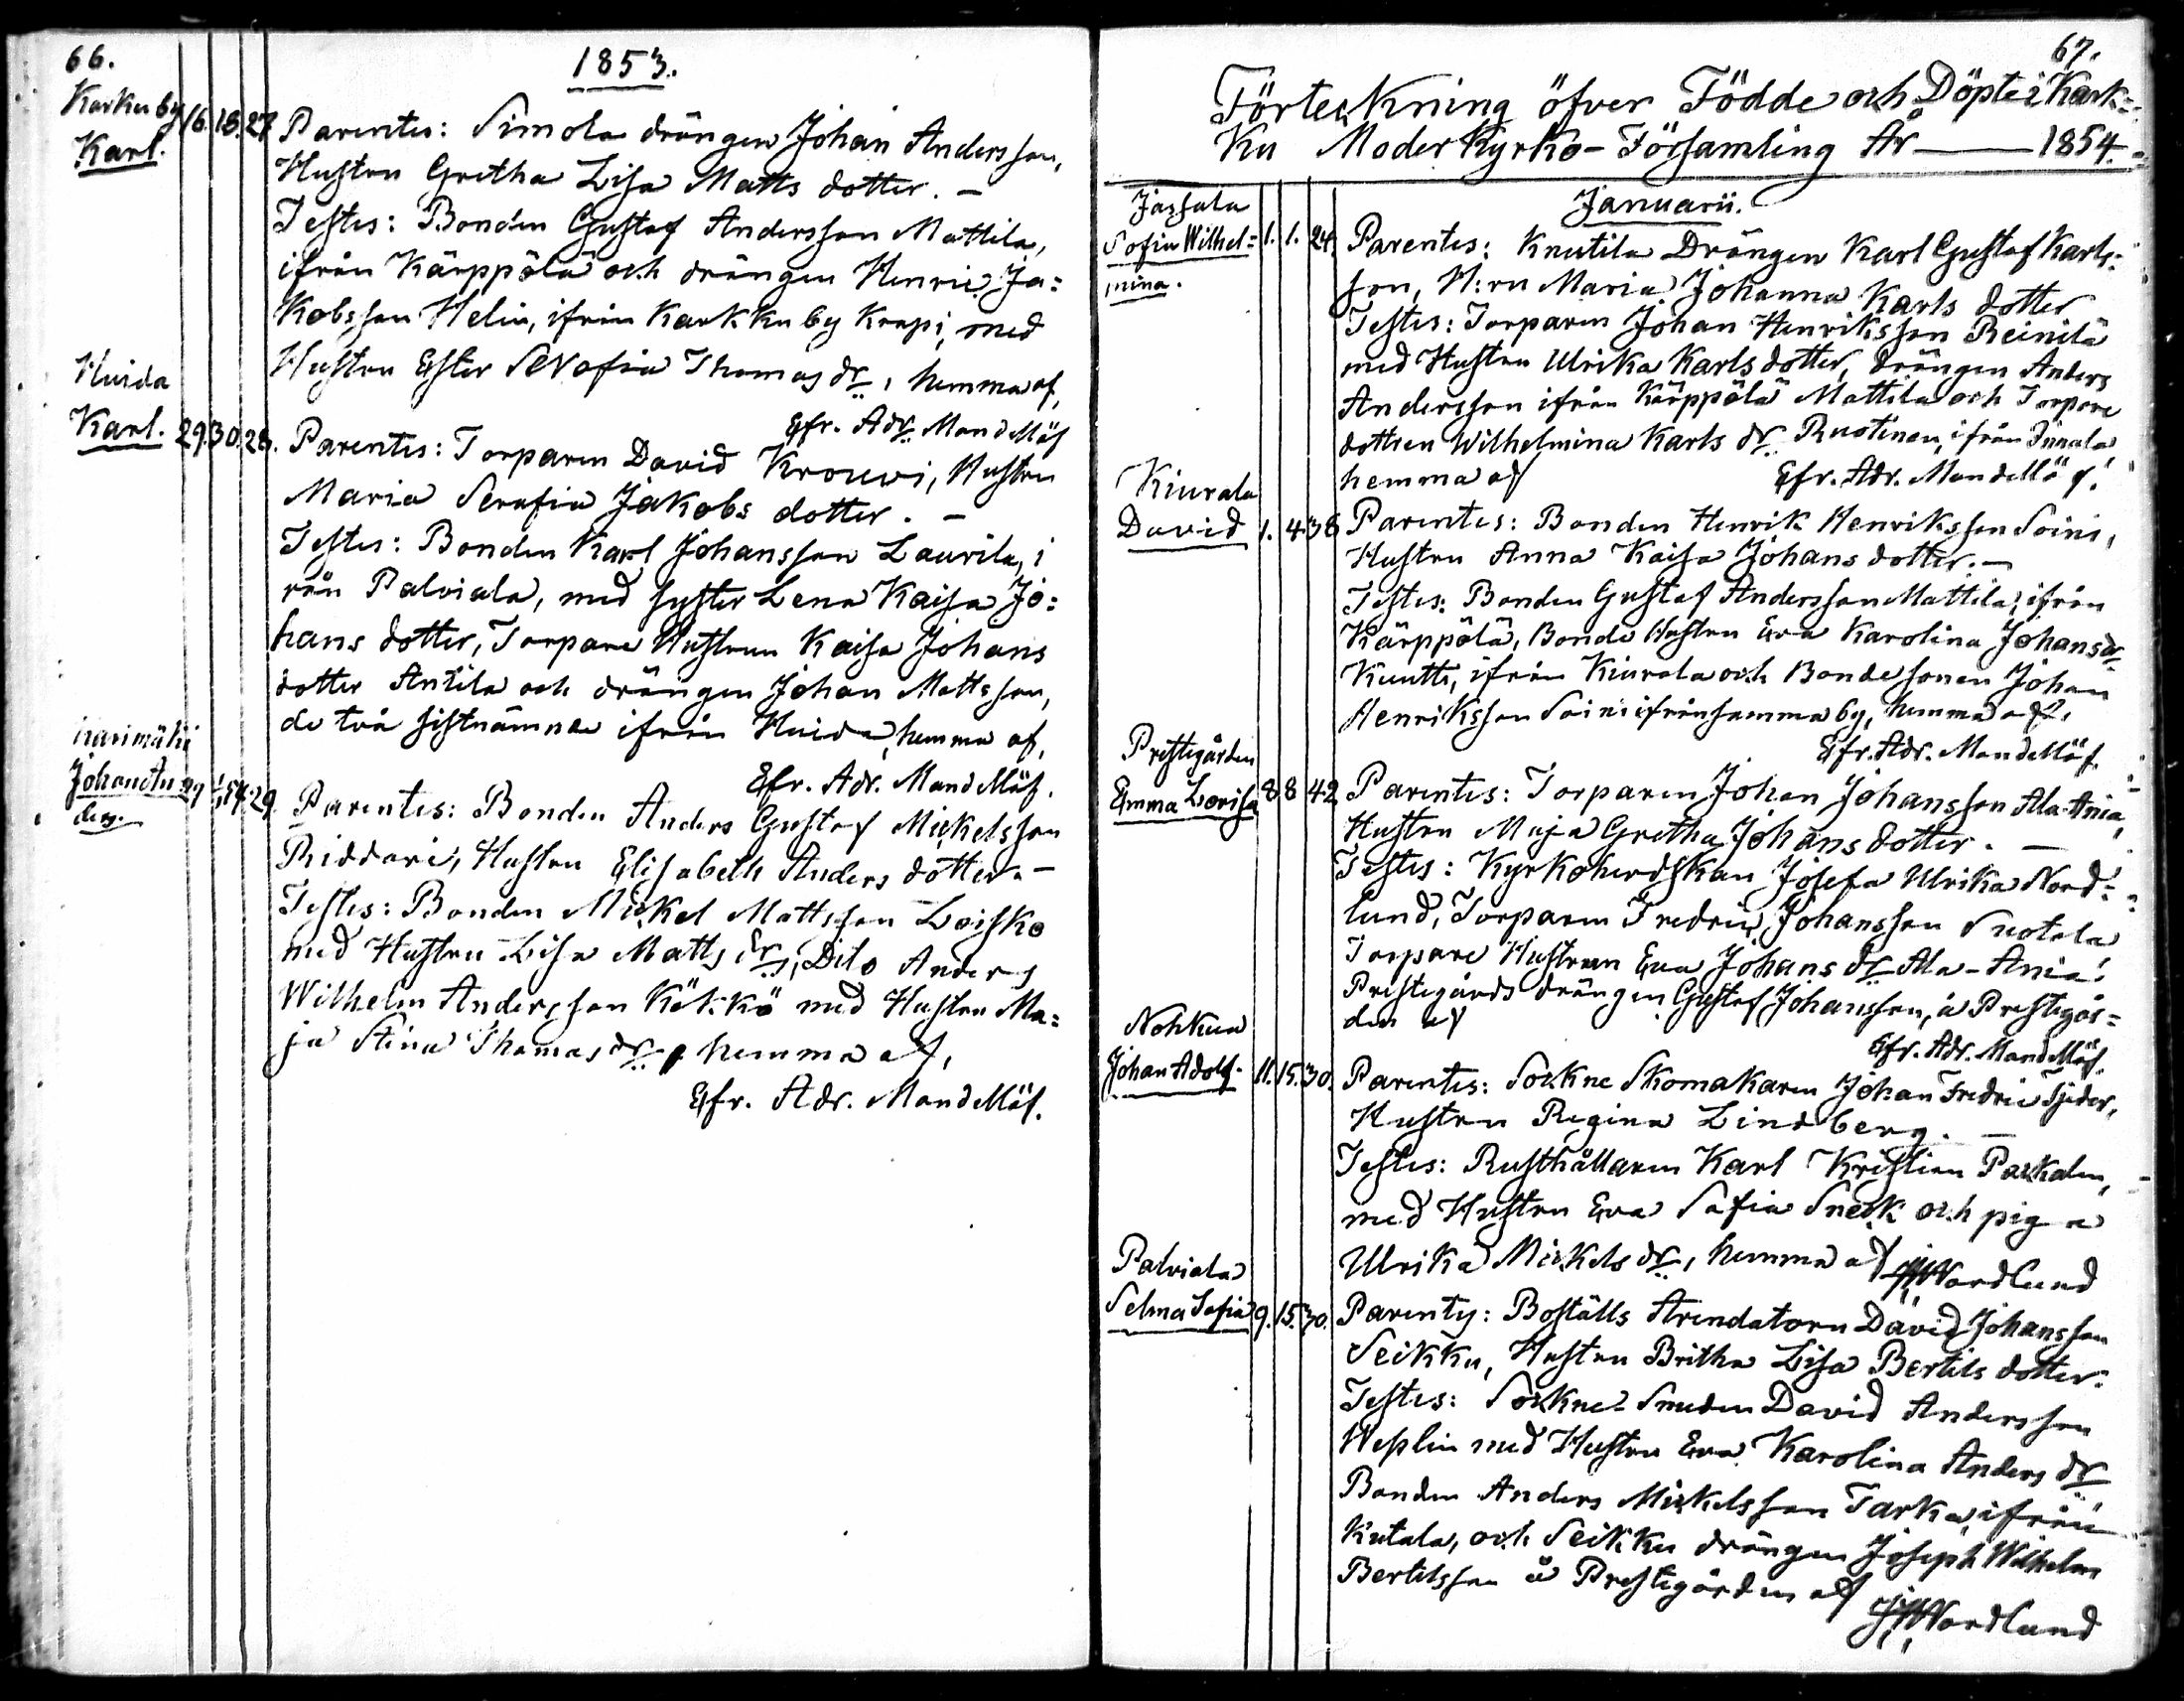 66.
1853.
Karkuby
Karl.
16. 18. 27.
Parentes: Simola drängen Johan Andersson,
Hustru Gretha Lisa Matts dotter. —
Testes: Bonden Gustaf Andersson Mattila,
ifrån Kärppälä och drängen Henric Ja=
kobsson Helin, ifrån Karkkuby Krapi, med
Hustru Ester Serafia Thomas dr, hemma af,
Efr. Adr. Mandellöf
Huida
Karl.
29. 30. 28.
Parentes: Torparen David Krouvi, Hustru
Maria Serafia Jakobs dotter. —
Testes: Bonden Karl Johansson Laurila, i
rån Palviala, med syster Lena Kaisa Jo=
hans dotter, Torpare Hustrun Kaisa Johans
dotter Antila och drängen Johan Mattsson,
de två sistnämne ifrån Huida, hemma af,
Efr. Adr. Mandellöf.
Johan An
ders.
29. 29.
Parentes: Bonden Anders Gustaf Mickelsson
Riddari, Hustru Elisabeth Anders dotter. —
Testes: Bonden Mickel Mattsson Loisko
med Hustru Lisa Matts dr, Dito Anders
Wilhelm Andersson Kökkö med Hustru Ma=
ja Stina Thomas dr, hemma af,
Efr. Adr. Mandellöf.
67.
Förteckning öfver Födde och Döpte i Kark=
ku Moder Kyrko-Församling År — 1854.
Januarii.
Jassala
Sofia Wilhel=
mina.
1. 1. 24.
Parentes: Knutila Drängen Karl Gustaf Karls=
son, H:ru Maria Johanna Karls dotter
Testes: Torparen Johan Henriksson Reinilä
med Hustru Ulrika Karls dotter, drängen Anders
Andersson ifrån Kärppälä Mattila och Torpare
dottren Wilhelmina Karls dr Ruotinen, ifrån Innala
hemma af
Efr. Adr. Mandellöf.
Kiurala
David
1. 4. 38
Parentes: Bonden Henrik Henriksson Soini,
Hustru Anna Kaisa Johans dotter. —
Testes: Bonden Gustaf Andersson Mattila, ifrån
Kärppälä, Bonde Hustru Eva Karolina Johans dr
Kuutti, ifrån Kiurala och Bondesonen Johan
Henriksson Soini ifrån samma by, hemma af,
Efr. Adr. Mandellöf.
Prestegården
Emma Lovisa
8 8 42
Parentes: Torparen Johan Johansson Ala-Ania,
Hustru Maja Gretha Johans dotter. —
Testes: Kyrkoherdskan Josefa Ulrika Nord=
lund, Torparen Fredric Johansson Suotala
Torpare Hustrun Eva Johans dr Ala-Ania,
Prestegårds drängen Gustaf Johansson, å Prestegår=
den af
Efr. Adr. Mandellöf.
Nohkua
Johan Adolf.
11. 15. 30.
Parentes: Sockne Skomakaren Johan Fredric Tjeder,
Hustru Regina Lindberg. —
Testes: Rusthållaren Karl Kristian Packalen,
med Hustru Eva Sofia Sneck och piga
Ulrika Mickels dr, hemma af
Nordlund
Palviala
Selma Sofia
9. 15. 30.
Parentes: Boställs Arendatorn David Johansson
Seikku, Hustru Britha Lisa Bertils dotter.
Testes: Sockne-Smeden David Andersson
Weplin med Hustru Eva Karolina Anders dr
Bonden Anders Mickelsson Tarka, ifrån
Kutala, och Seikku drängen Joseph Wilhelm
Bertilsson å Prestegården af
Nordlund